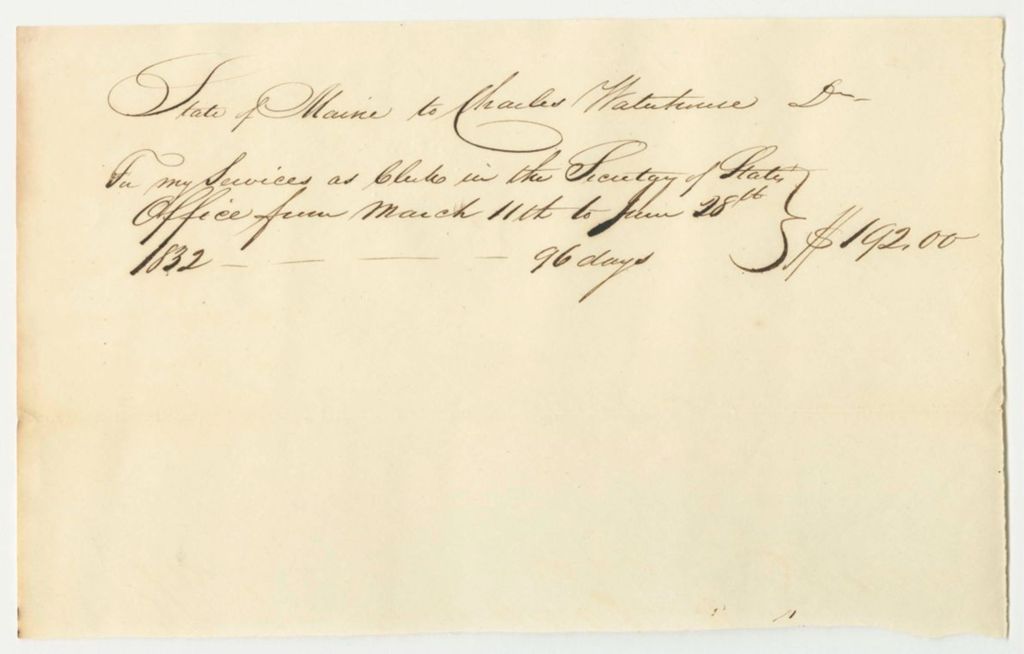 State of Maine to Charles Waterhouse Dr
For my Services as Clerk in the Secretary of States
Office from March 11th to June 28th
1832 — — — — 96 days
$192.00